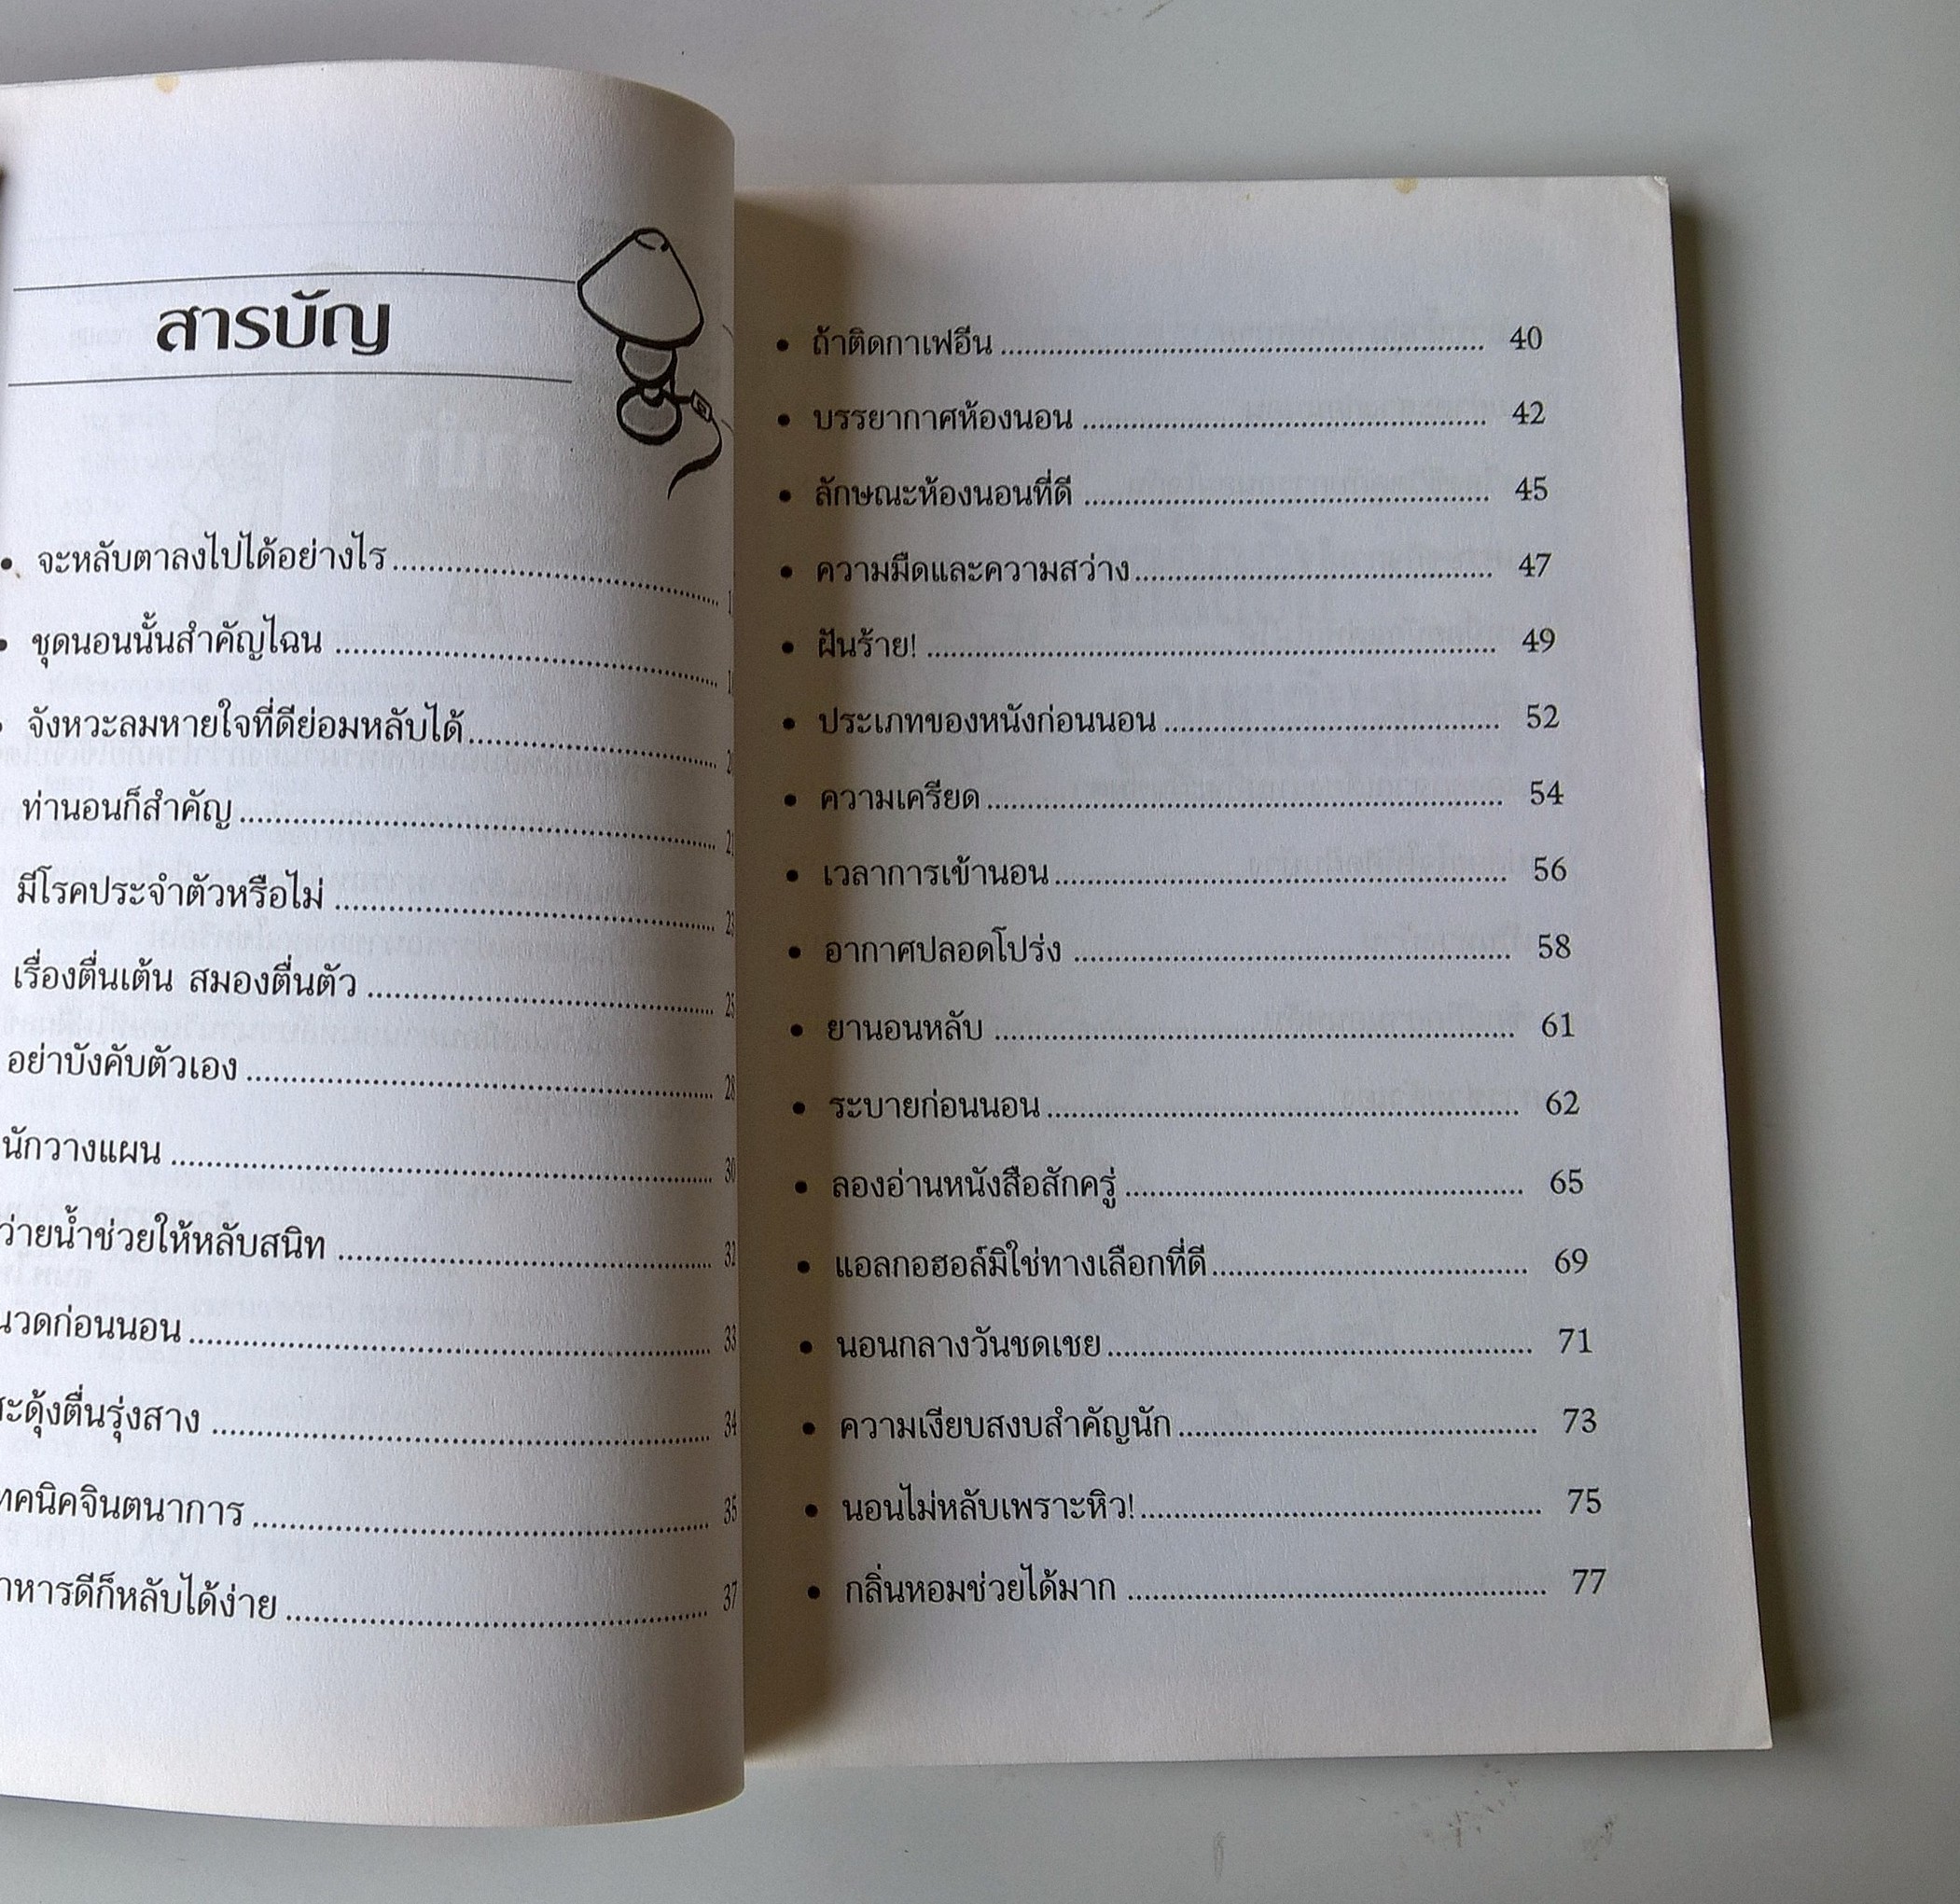 สารบัญ
• จะหลับตาลงไปได้อย่างไร
• ชุดนอนนั้นสำคัญไฉน
• จังหวะลมหายใจที่ดีย่อมหลับได้
ท่านอนก็สำคัญ
มีโรคประจำตัวหรือไม่ 23
เรื่องตื่นเต้น สมองตื่นตัว 25
อย่าบังคับตัวเอง 28
นักวางแผน 30
ว่ายน้ำช่วยให้หลับสนิท 32
นวดก่อนนอน 33
สะดุ้งตื่นรุ่งสาง 34
ทคนิคจินตนาการ 35
าหารดีก็หลับได้ง่าย 37
• ถ้าติดกาเฟอีน 40
• บรรยากาศห้องนอน 42
• ลักษณะห้องนอนที่ดี 45
• ความมืดและความสว่าง 47
• ฝันร้าย! 49
• ประเภทของหนังก่อนนอน 52
• ความเครียด 54
• เวลาการเข้านอน 56
• อากาศปลอดโปร่ง 58
• ยานอนหลับ 61
• ระบายก่อนนอน 62
• ลองอ่านหนังสือสักครู่ 65
• แอลกอฮอล์มิใช่ทางเลือกที่ดี 69
• นอนกลางวันชดเชย 71
• ความเงียบสงบสำคัญนัก 73
• นอนไม่หลับเพราะหิว! 75
• กลิ่นหอมช่วยได้มาก 77